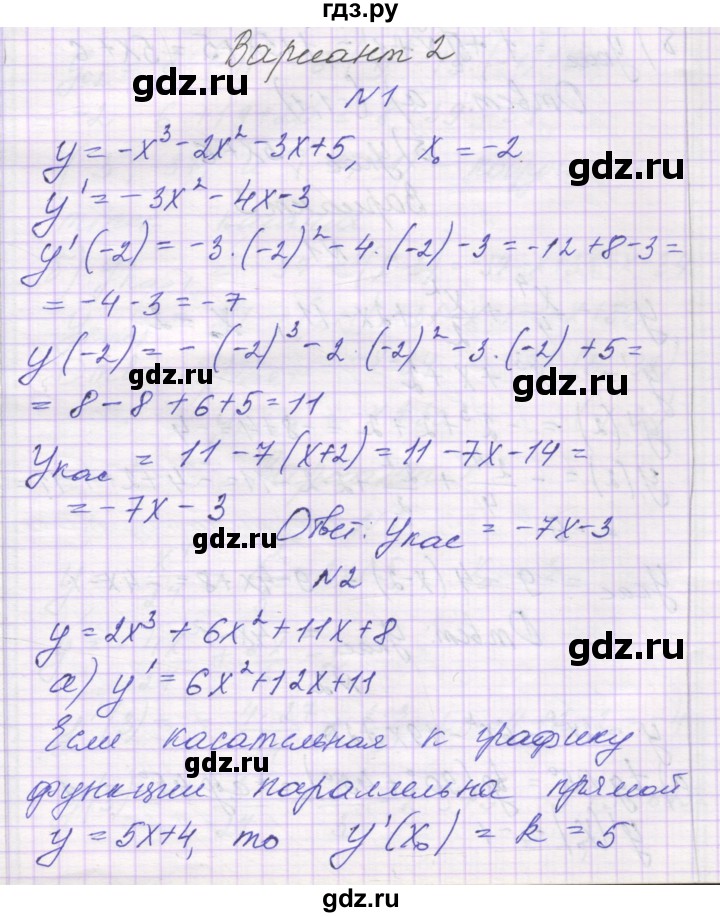 гдз.ру
Вариант 2
gdz.ru
N1
y = -x³ - 2x² - 3x + 5, x₀ = -2.
gdz.ru
gdz.ru
y' = -3x² - 4x - 3
y'(-2) = -3·(-2)² - 4·(-2) - 3 = -12 + 8 - 3 =
gdz.ru
= -4 - 3 = -7
y(-2) = -(-2)³ - 2·(-2)² - 3·(-2) + 5 =
gdz.ru
gdz.ru
= 8 - 8 + 6 + 5 = 11
yкас = 11 - 7(x+2) = 11 - 7x - 14 =
= -7x - 3
gdz.ru
Ответ: yкас = -7x-3
N2
y = 2x³ + 6x² + 11x + 8
gdz.ru
а) y' = 6x² + 12x + 11
Если касательная к графику
gdz.ru
функции параллельна прямой
y = 5x+4, то y'(x₀) = k = 5
gdz.ru
gdz.ru
гдз.ру